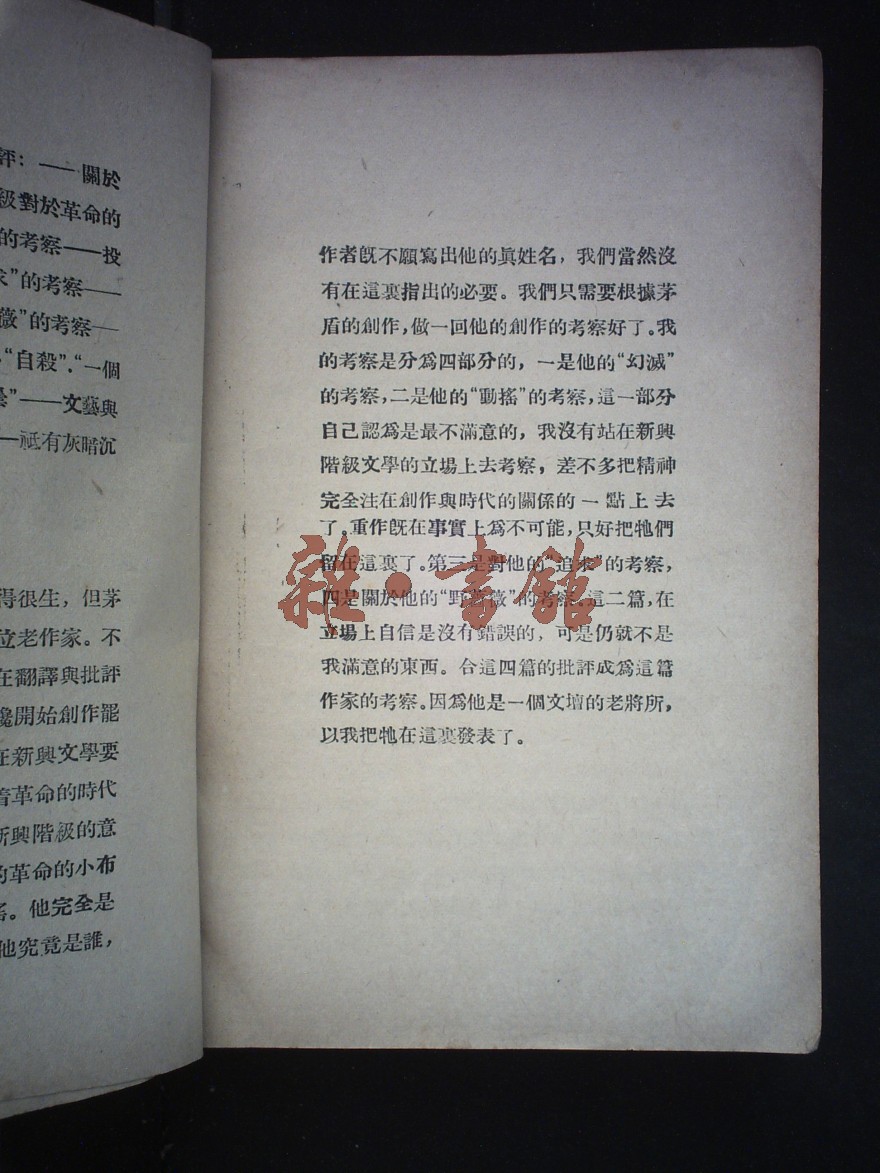 評：——關於
級對於革命的
的考察——投
求”的考察——
薇”的考察—
“自殺”．“一個
曇”——文藝與
—祗有灰暗沉
得很生，但茅
位老作家。不
在翻譯與批評
纔開始創作罷
在新興文學要
着革命的時代
新興階級的意
的革命的小布
。他完全是
他究竟是誰，
作者旣不願寫出他的眞姓名，我們當然沒
有在這裏指出的必要。我們只需要根據茅
盾的創作，做一回他的創作的考察好了。我
的考察是分爲四部分的，一是他的“幻滅”
的考察，二是他的“動搖”的考察，這一部分
自己認爲是最不滿意的，我沒有站在新興
階級文學的立場上去考察，差不多把精神
完全注在創作與時代的關係的一點上去
了。重作旣在事實上爲不可能，只好把牠們
留在這裏了。第三是對他的“追求”的考察，
四是關於他的“野薔薇”的考察。這二篇，在
立場上自信是沒有錯誤的，可是仍就不是
我滿意的東西。合這四篇的批評成爲這篇
作家的考察。因爲他是一個文壇的老將所，
以我把牠在這裏發表了。
雜·書館